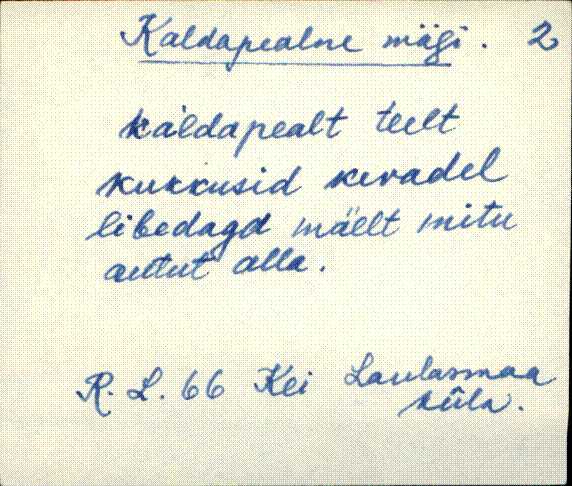 Kaldapealne mägi. 2
kaldapealt teelt
kukkusid kevadel
libedagd mäelt mitu
autut alla.
R. L. 66 Kei Laulasmaa
küla.